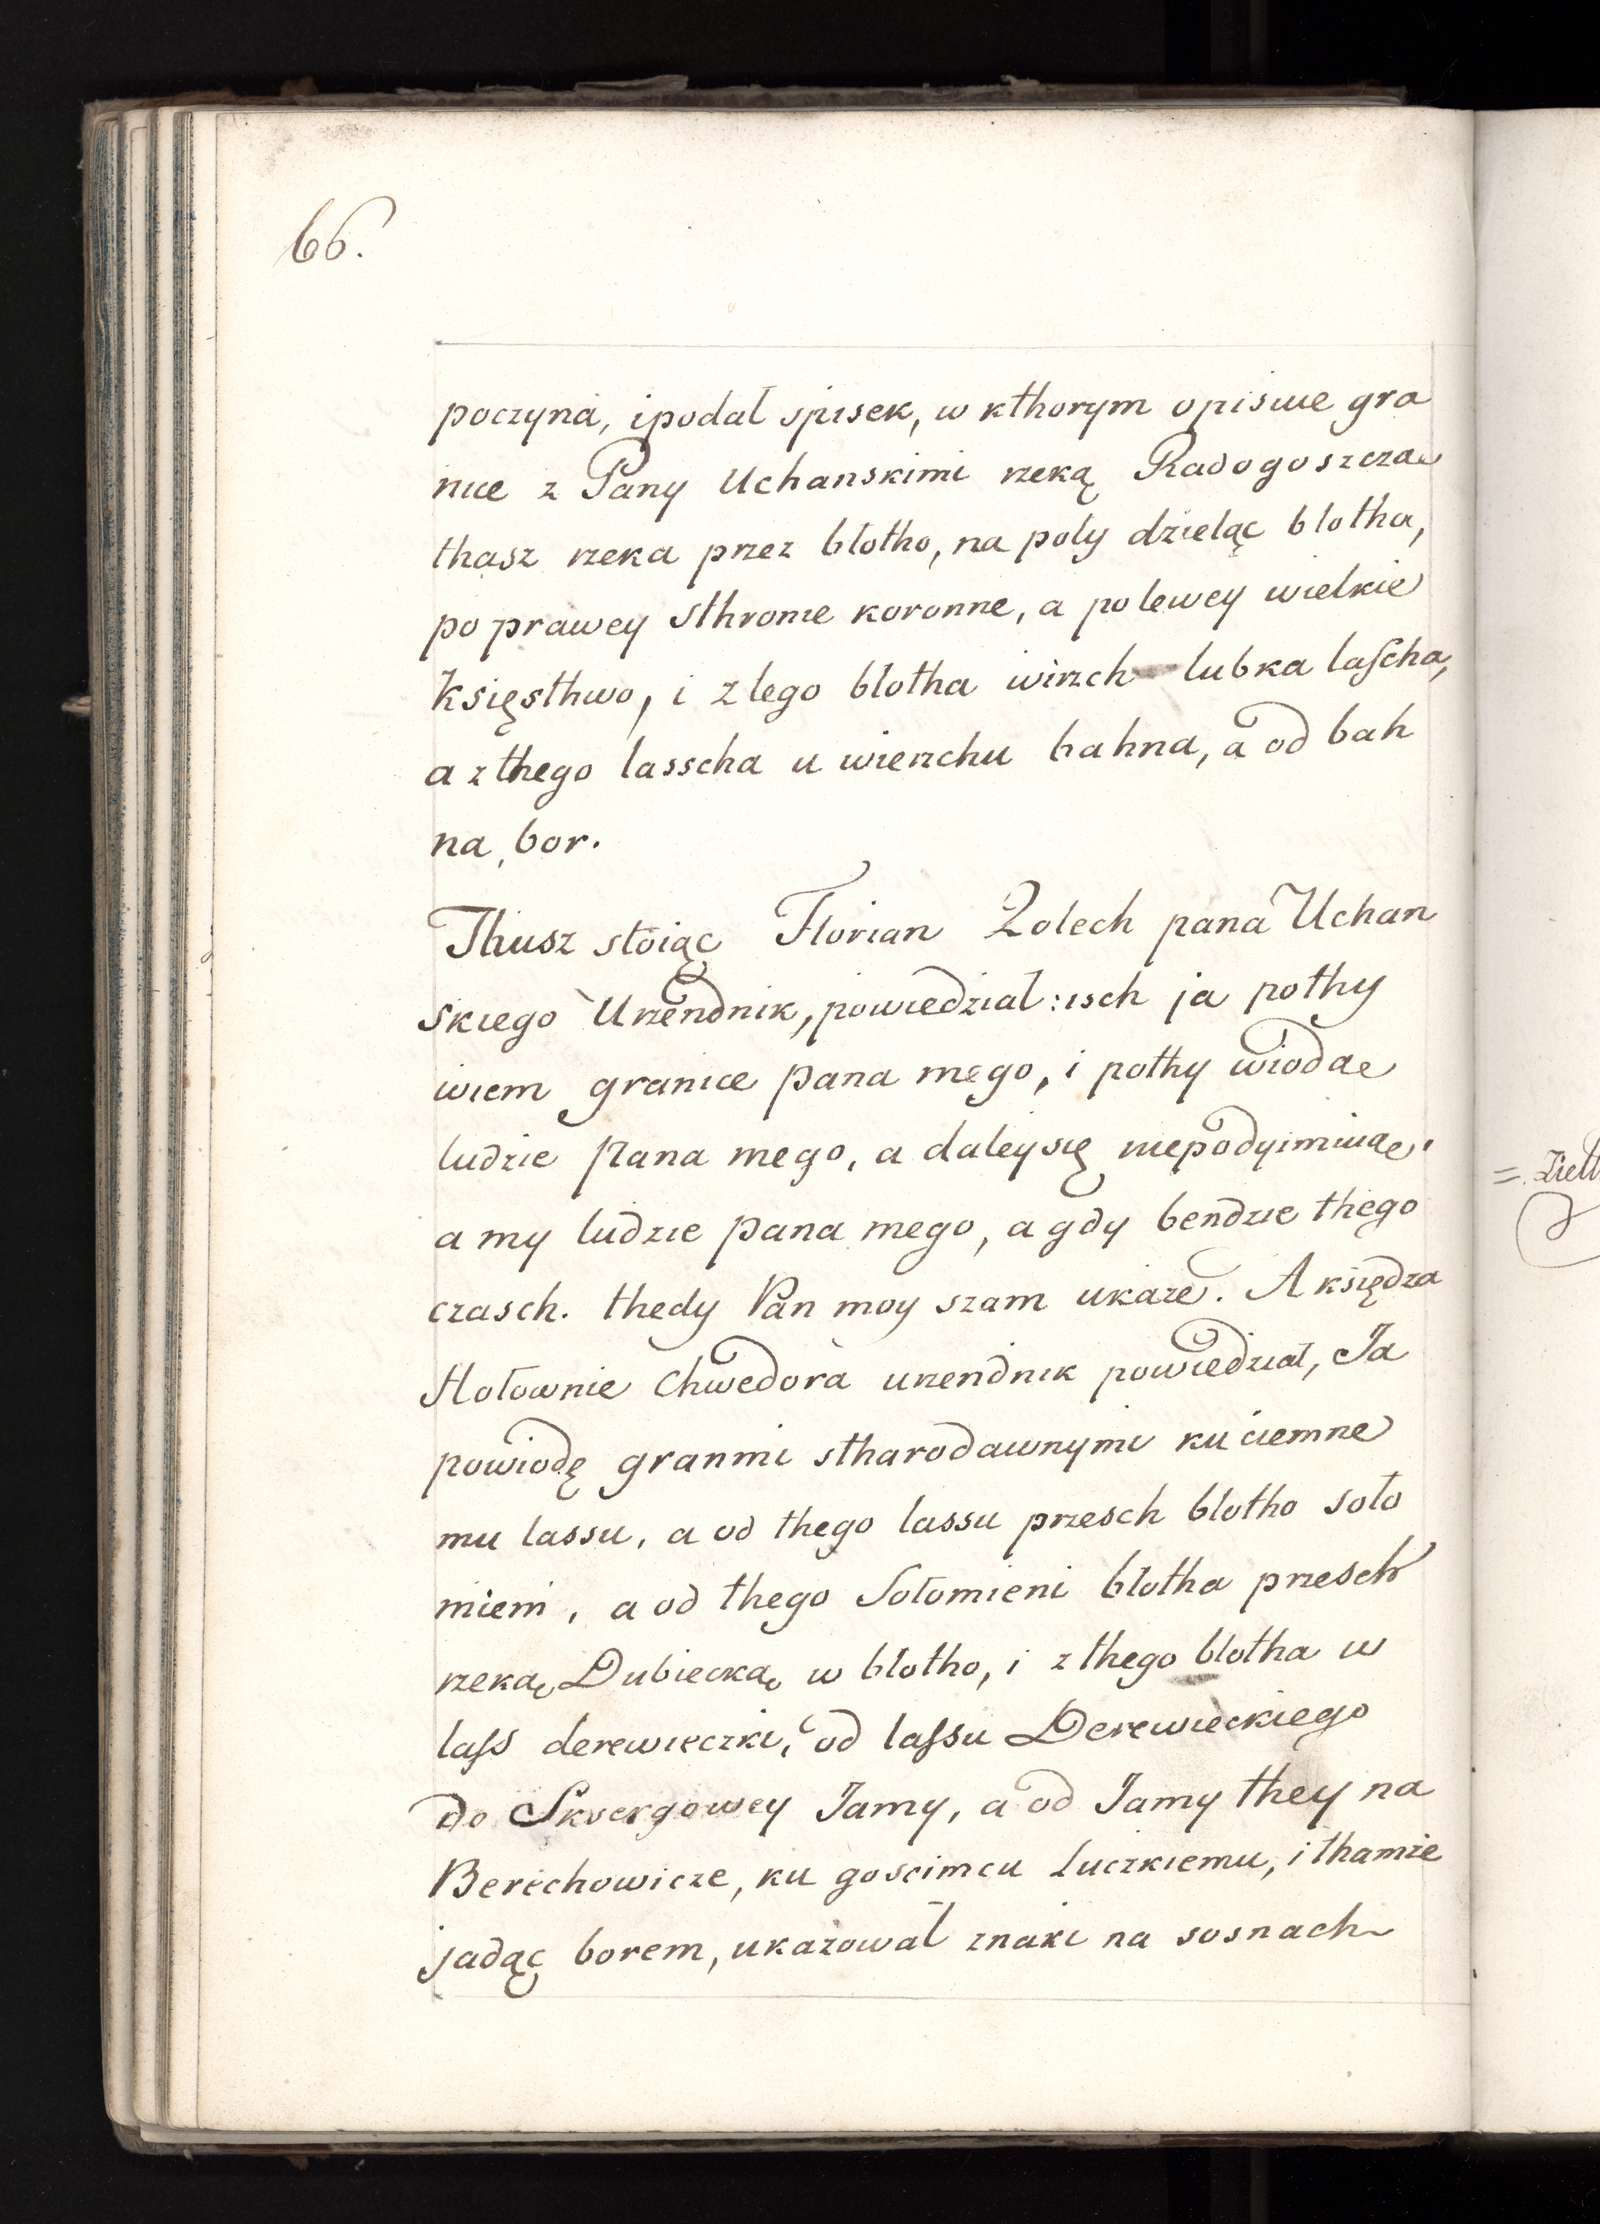 66.
poczyna, ipodal spisek, w kthorym opisuie gra
nice z Pany Uchanskimi rzeką Radogoszczą
thasz rzeka przez blotho, na poly dzieląc blotha,
po prawey sthronie koronne, a po lewey wielkie
Księsthwo, i z lego blotha wirzch lubka lascha,
a z thego lasscha u wierzchu bahna, a od bah
na, bor.
Thusz stoiąc Florian Zolech pana Uchan
skiego Urzendnik, powiedzial: isch ja pothy
wiem granice pana mego, i pothy wiodąe
ludzie Pana mego, a daley się niepodyimuiąe,
a my ludzie pana mego, a gdy bendzie thego
czasch. thedy Pan moy szam ukaze. A księdza
Hołownie Chwedora urzendnik powiedział, Ja
powiodę granmi stharodawnymi ku ciemne
mu lassu, a od thego lassu przesch blotho soło
mieni, a od thego Sołomieni blotha przesch
rzekę Dubiecką w blotho, i z thego blotha w
lass derewieczki, od lassu Derewieckiego
do Skvergowey Jamy, a od Jamy they na
Berechowicze, ku goscimcu Luczkiemu, i thamże
jadąc borem, ukazował znaki na sosnach